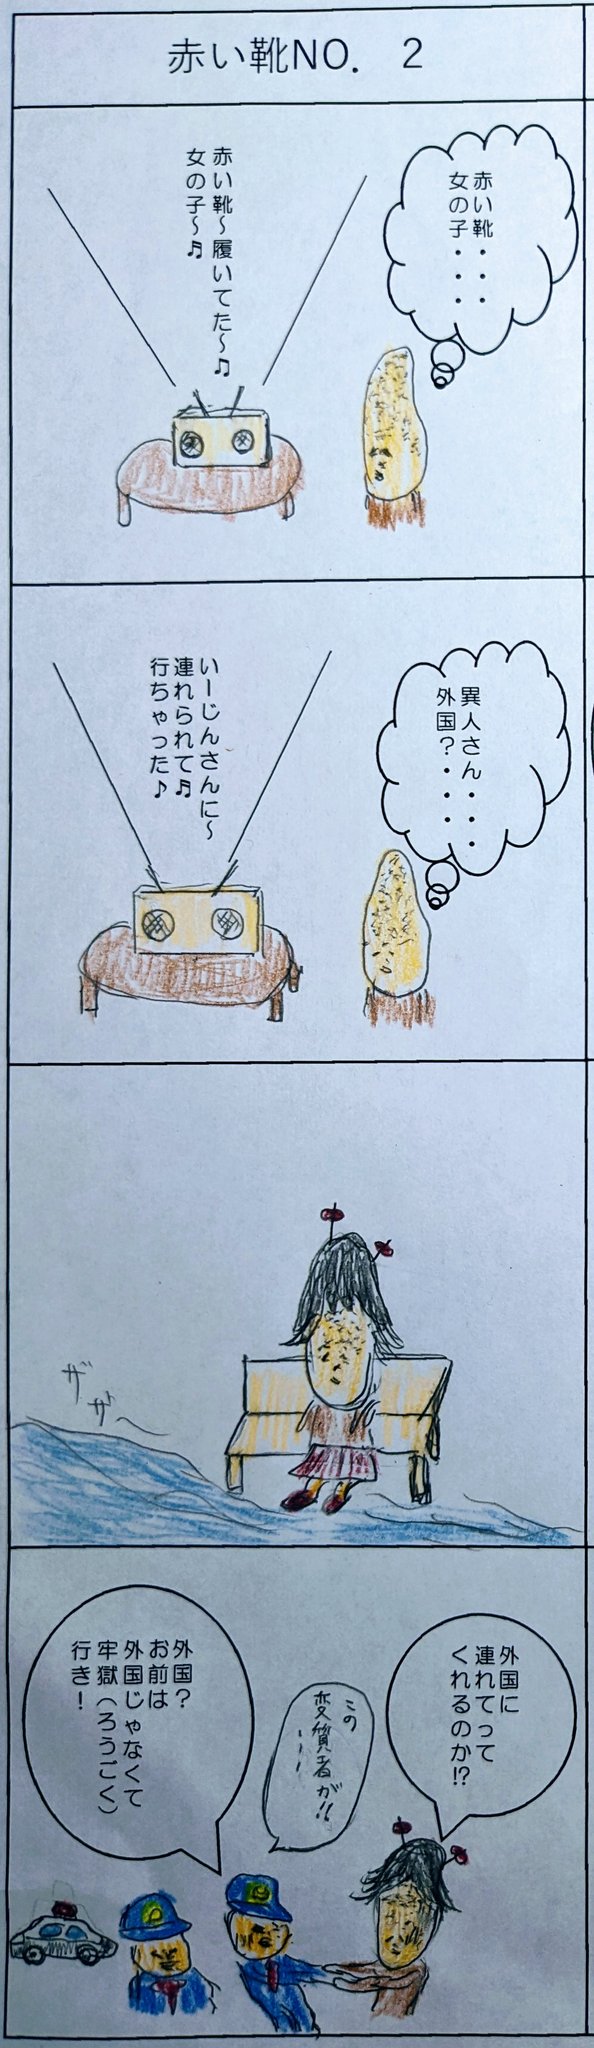 赤い靴NO. 2
赤い靴・・・
女の子・・・・
赤い靴~履いてた~♫
女の子~♫
異人さん・・・・
外国?・・・・
いーじんさんに~
連れられて♬
行ちゃった♪
ザ
ザァ~
外国に
連れてって
くれるのか!?
この
変質者が!!
外国?
お前は
外国じゃなくて
牢獄(ろうごく)
行き!